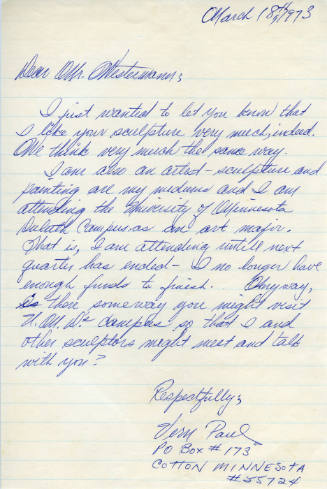 March 18th/1973
Dear Mr. Westermann;
I just wanted to let you know that
I like your sculpture very much, indeed.
We think very much the same way.
I am also an artist - sculpture and
painting are my mediums and I am
attending the University of Minnesota
Duluth Campus as an art major.
That is, I am attending untill next
quarter has ended - I no longer have
enough funds to finish. Anyway,
is there someway you might visit
U.M.D.'s campus so that I and
other sculptors might meet and talk
with you?
Respectfully,
Vern Paul
PO Box #173
COTTON MINNESOTA
#55724